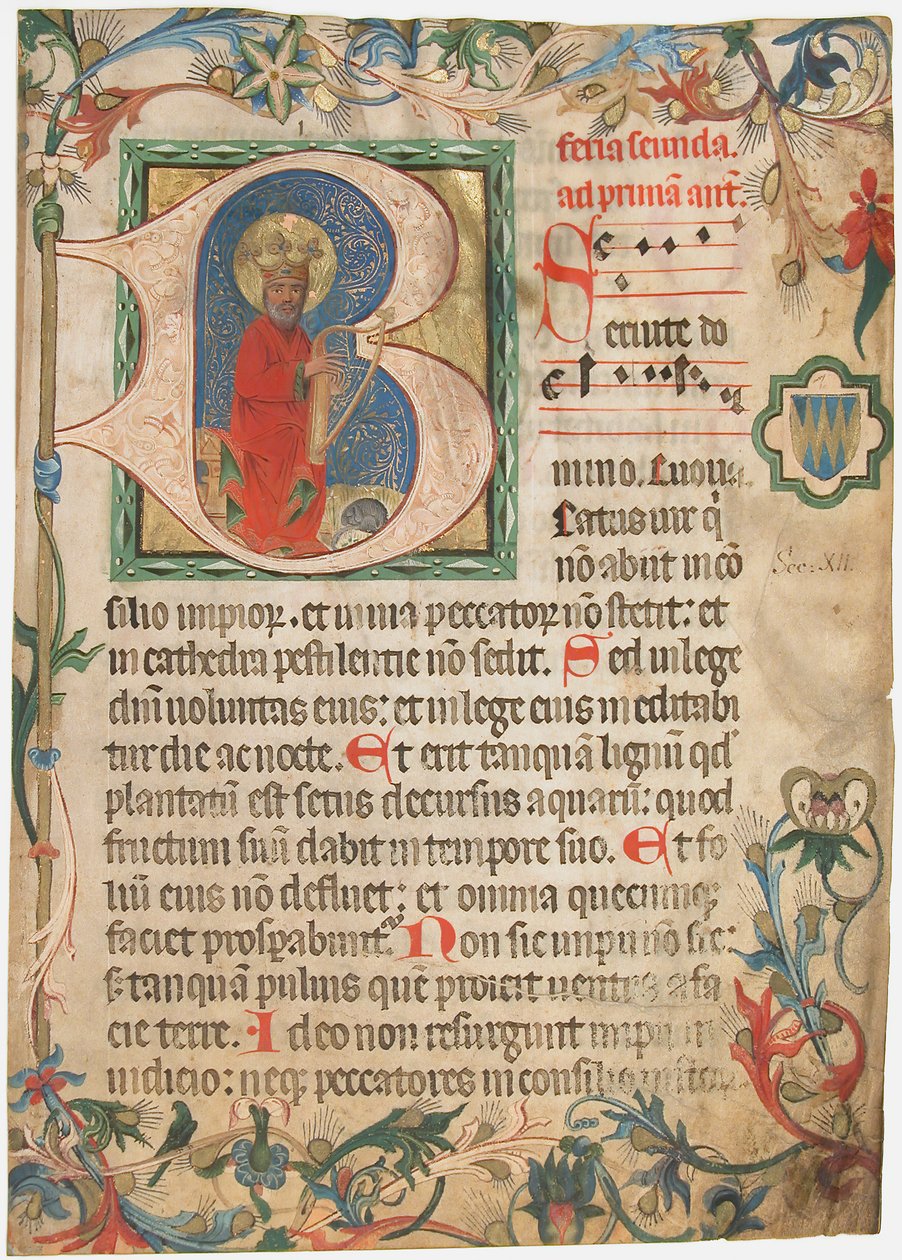 feria secunda.
ad primā ant̄.
Seruite do
mino. Euouae.
Beatus uir q̇
nō abijt in cō
silio impioꝝ. et in uia peccatoꝝ nō stetit: et
in cathedra pestilentie nō sedit. Sed in lege
dn̄i uoluntas eius: et in lege eius meditabi
tur die ac nocte. Et erit tanquā lignū qd̓
plantatū est secus decursus aquarū: quod
fructum suū dabit in tempore suo. Et fo
liū eius nō defluet: et omnia quecumqꝫ
faciet prosꝑabunt̉. Non sic impij nō sic:
s; tanquā puluis quē proicit uentus a fa
cie terre. Ideo non resurgunt impij in
iudicio: neqꝫ peccatores in consilio iustoꝝ.
Sec: XII.